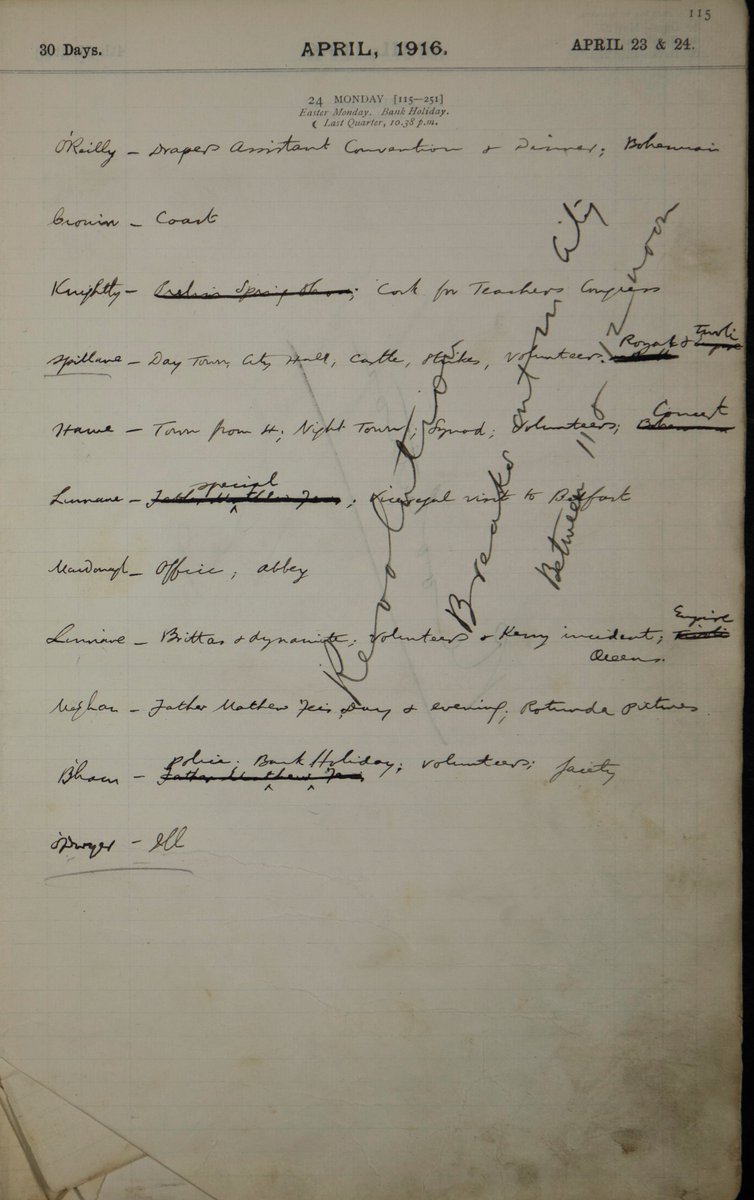 115
30 Days. APRIL, 1916. APRIL 23 & 24.
24 MONDAY [115—251]
Easter Monday. Bank Holiday.
☾ Last Quarter, 10.38 p.m.
O'Reilly – Drapers Assistant Convention & Dinner; Bohemian
Cronin – Coast
Knightly – Spring Show; Cork for Teachers Congress
Spillane – Day Town, City Hall, Castle, Strikes, Volunteers. Royal & Tivoli Empire
Hawe – Town from 4; Night Town; Synod; Volunteers; Concert
Linnane – Father Mathew Feis special; Viceregal visit to Belfast
MacDonagh – Office; Abbey
Linnane – Brittas & dynamite; Volunteers & Kerry incident; Empire Tivoli
Queens.
Meghan – Father Mathew Feis Day & evening; Rotunda Pictures
– Father Mathew Feis police; Bank Holiday; Volunteers; Gaiety
O'Dwyer – Ill
Revolution
Breaks out in City
Between 11 & 12 noon